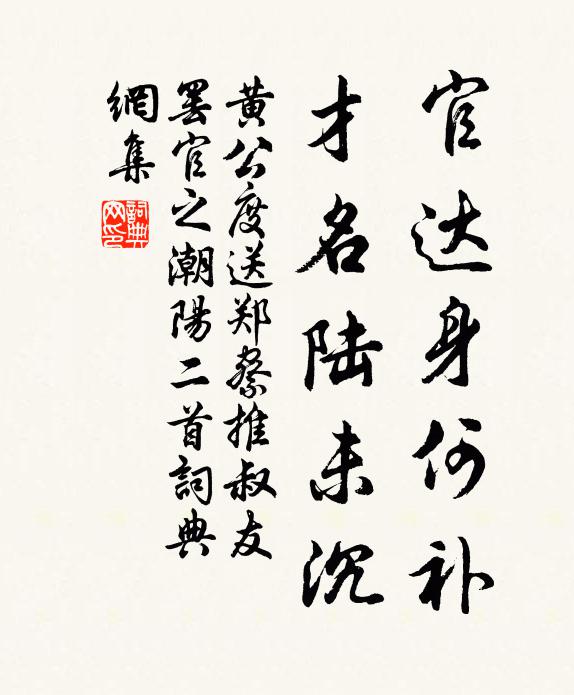 官达身何补
才名陆未沉
黄公度送郑察推叔友
罢官之潮陽二首詞典
網集
詞典
网印